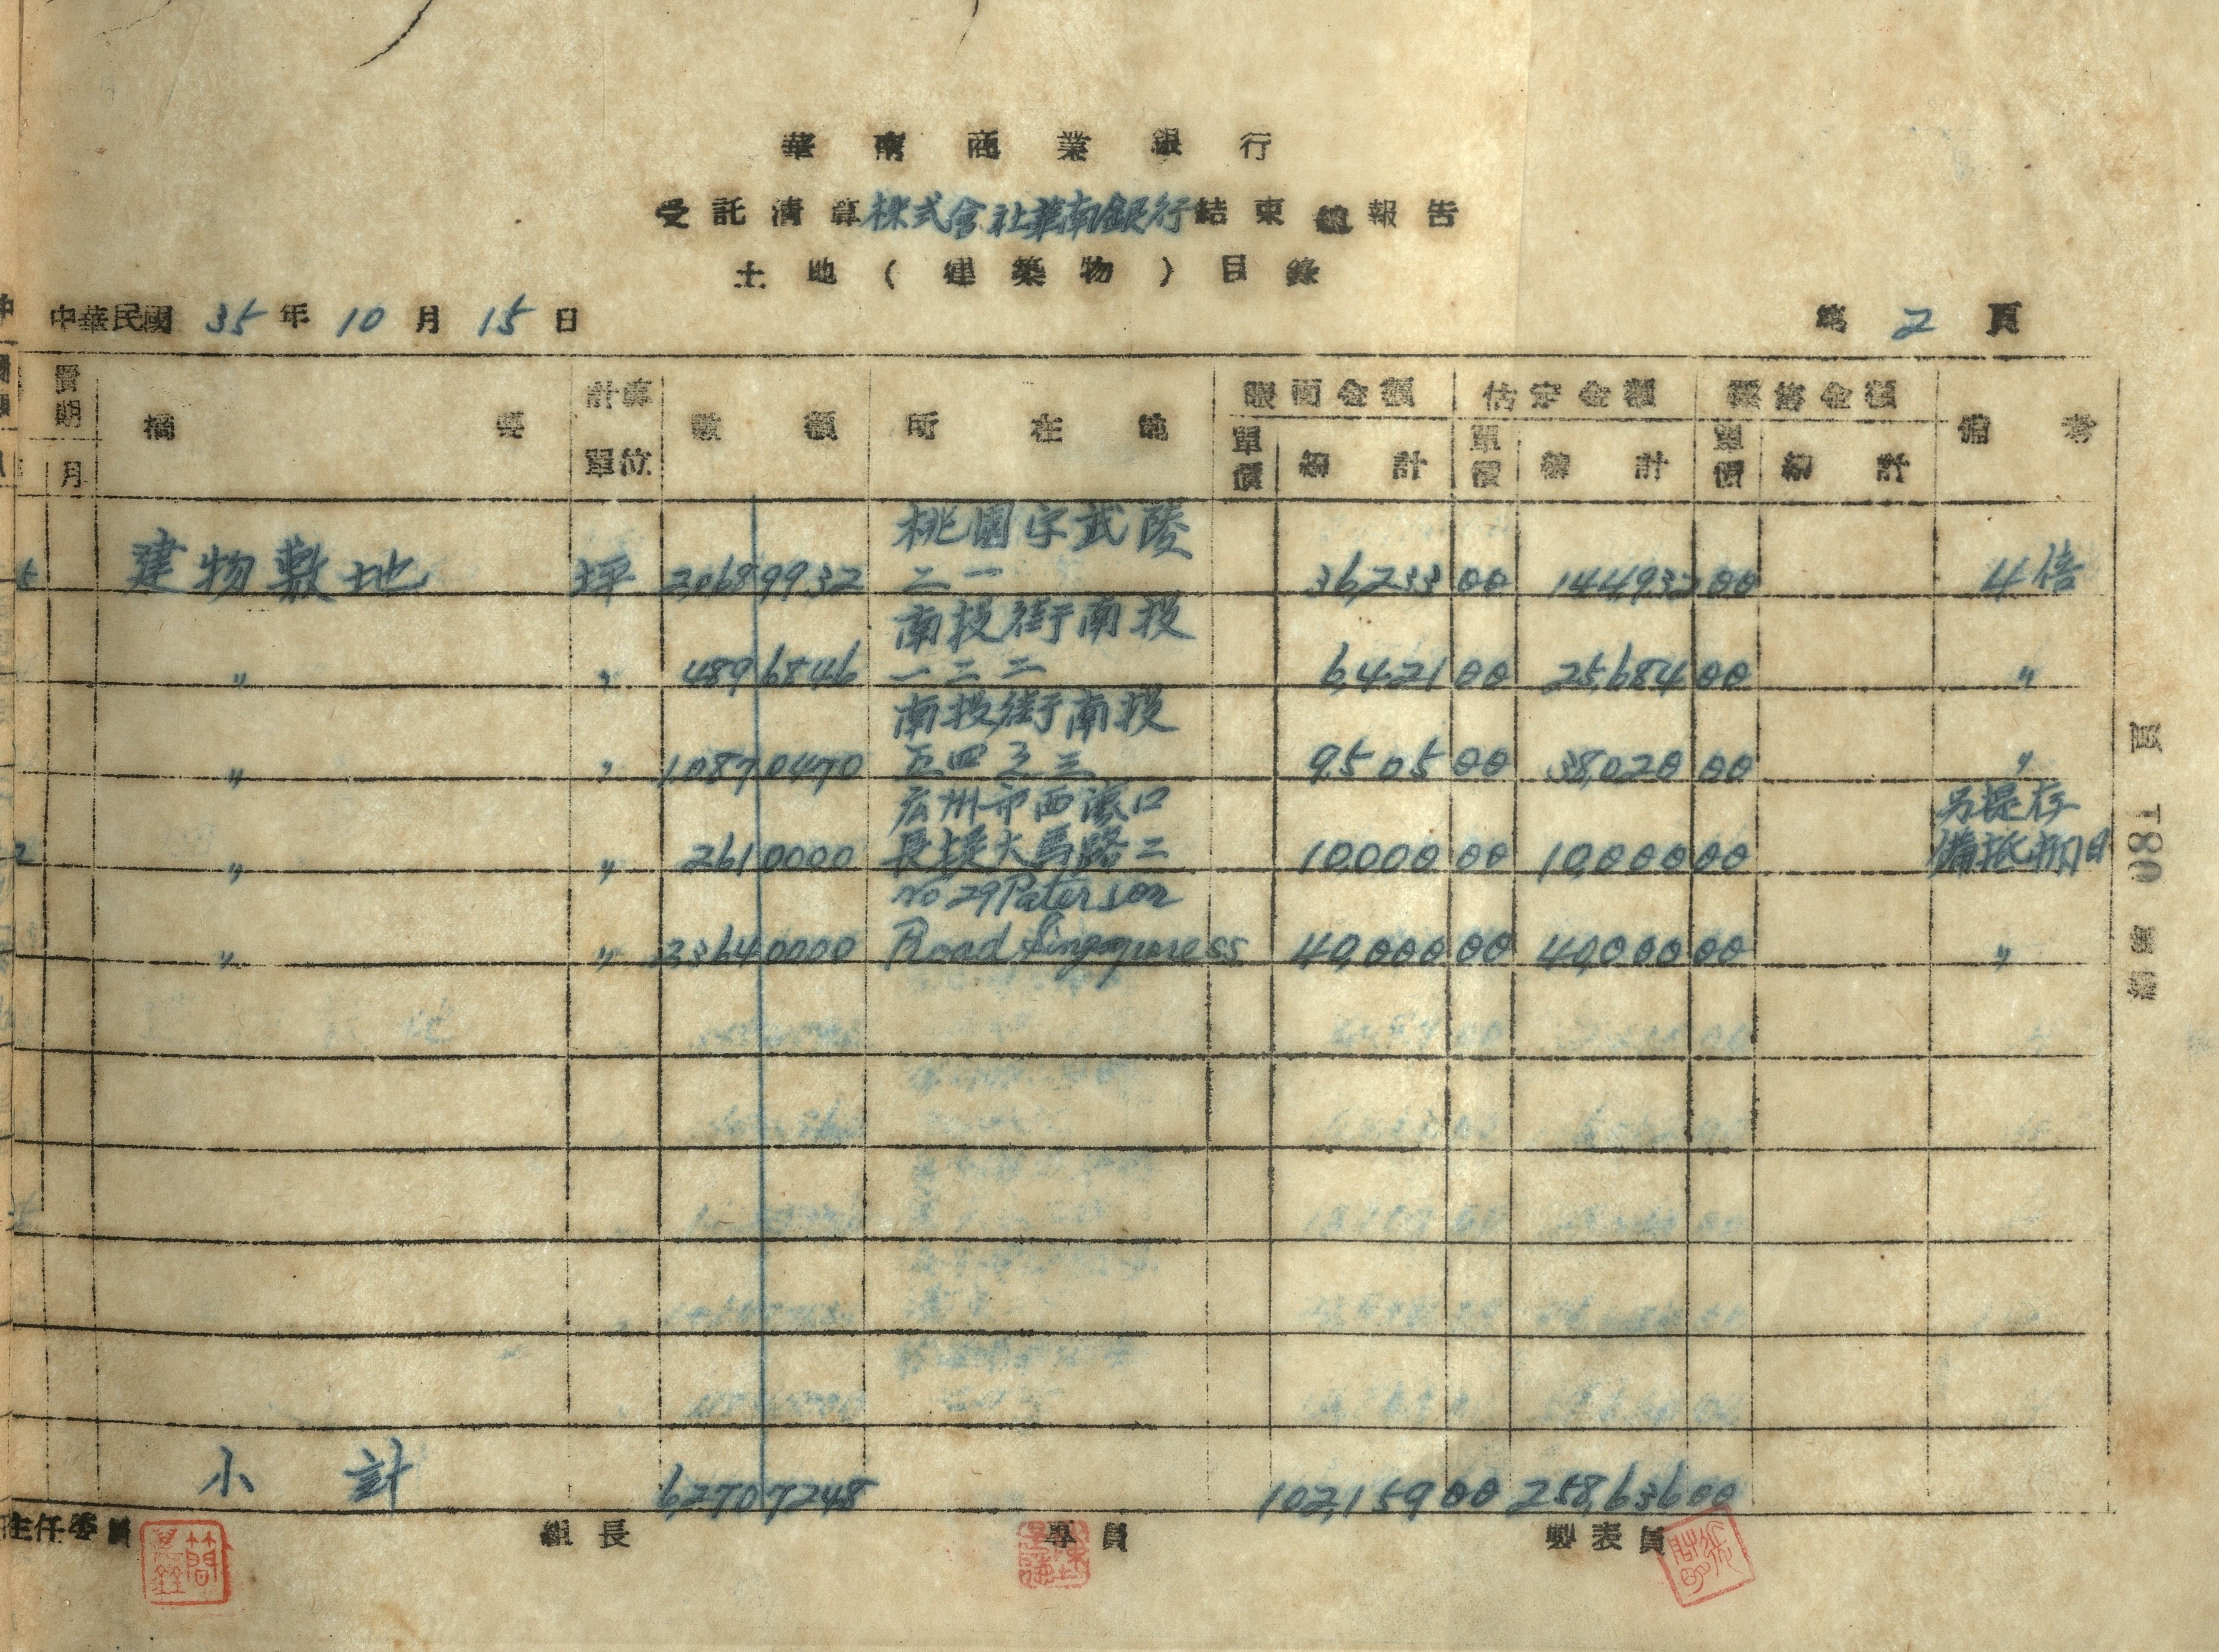 華南商業銀行
受託清算株式會社華南銀行結束總報告
土地(建築物)目錄
中華民國 35 年 10 月 15 日 第 2 頁
摘要 計算單位 數額 所在地 賬面金額 估定金額 金額 備考
月 單價 總計 單價 總計 單價 總計
桃園字武陵
建物敷地 坪 2,068 9932 二一 36,233 00 144,932 00 4倍
南投街南投
〃 〃 489 6846 一二二 6,421 00 25,684 00 〃
南投街南投
〃 〃 1,087 0470 五四之三 9,505 00 38,020 00 〃
広州市西濠口 另提存
〃 〃 261 0000 長堤大馬路二 10,000 00 10,000 00 備抵
No 29 Paterson
〃 〃 2,364 0000 Road Singapore SS 40,000 00 40,000 00 〃
小計 6,270 7248 102,159 00 258,636 00
主任委員 組長 專員 製表員
頁 T80 第